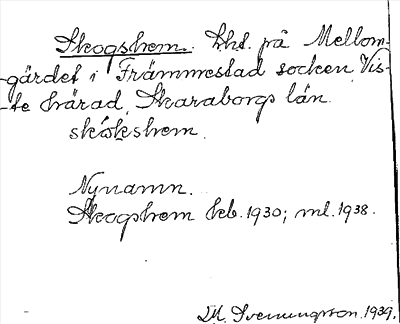 Skogshem. Lht. på Mellom-
-gärdet i Främmestad socken Vis-
-te härad, Skaraborgs län.
skὼkshem.
Nynamn.
Skogshem kb. 1930; ml. 1938.
M. Svenungson. 1939.